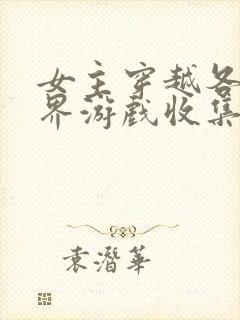 女主穿越各
界游戏收集
袁潛華